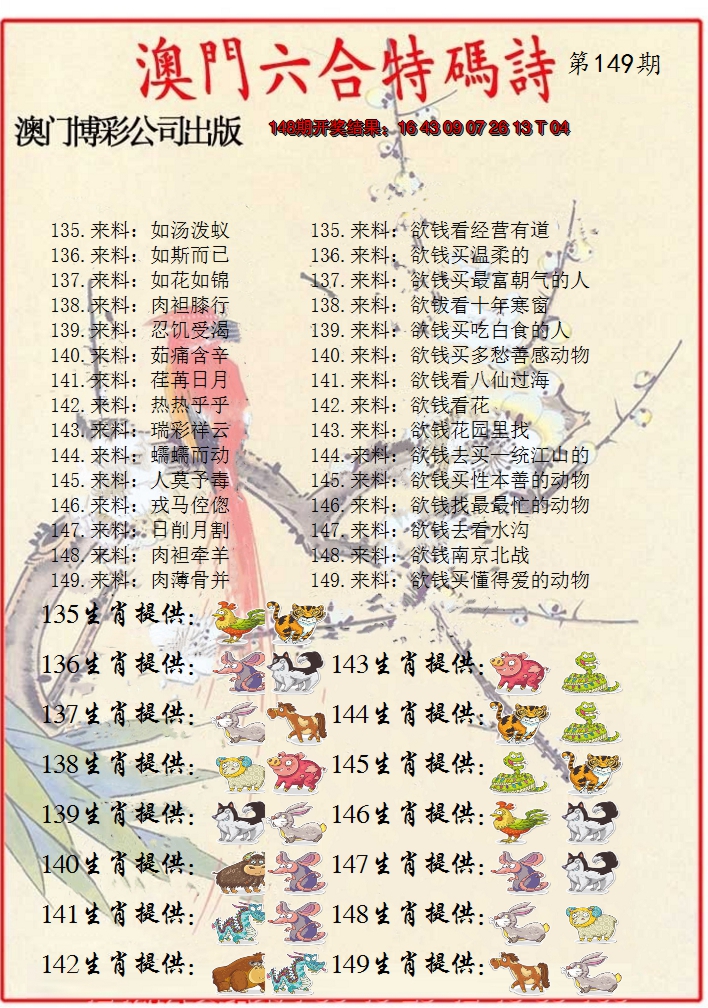 澳門六合特碼詩 第149期
澳门博彩公司出版 148期开奖结果：16 43 09 07 26 13 T 04
135.来料：如汤泼蚁 135.来料：欲钱看经营有道
136.来料：如斯而已 136.来料：欲钱买温柔的
137.来料：如花如锦 137.来料：欲钱买最富朝气的人
138.来料：肉袒膝行 138.来料：欲钱看十年寒窗
139.来料：忍饥受渴 139.来料：欲钱买吃白食的人
140.来料：茹痛含辛 140.来料：欲钱买多愁善感动物
141.来料：荏苒日月 141.来料：欲钱看八仙过海
142.来料：热热乎乎 142.来料：欲钱看花
143.来料：瑞彩祥云 143.来料：欲钱花园里找
144.来料：蠕蠕而动 144.来料：欲钱去买一统江山的
145.来料：人莫予毒 145.来料：欲钱买性本善的动物
146.来料：戎马倥偬 146.来料：欲钱找最最忙的动物
147.来料：日削月割 147.来料：欲钱去看水沟
148.来料：肉袒牵羊 148.来料：欲钱南京北战
149.来料：肉薄骨并 149.来料：欲钱买懂得爱的动物
135生肖提供：
136生肖提供： 143生肖提供：
137生肖提供： 144生肖提供：
138生肖提供： 145生肖提供：
139生肖提供： 146生肖提供：
140生肖提供： 147生肖提供：
141生肖提供： 148生肖提供：
142生肖提供： 149生肖提供：